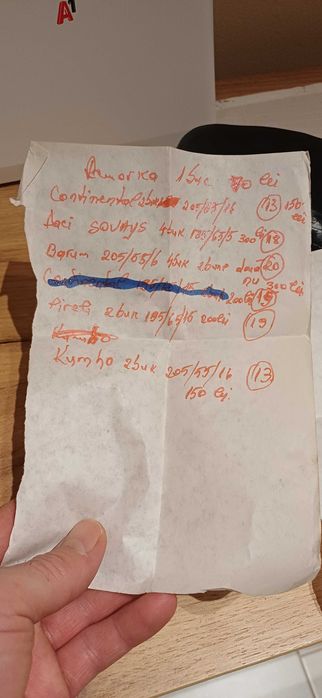 A1
1 buc 70 lei
Continental 2buc 205/55/16 (13) 150 lei
4buc 195/65/15 300 lei (18)
Barum 205/55/16 4buc 2bune două nu (20) 300 lei
200lei (15)
Pirelli 2buc 195/65/15 200lei (19)
Kumho
Kymho 2buc 205/55/16 (13)
150 lei